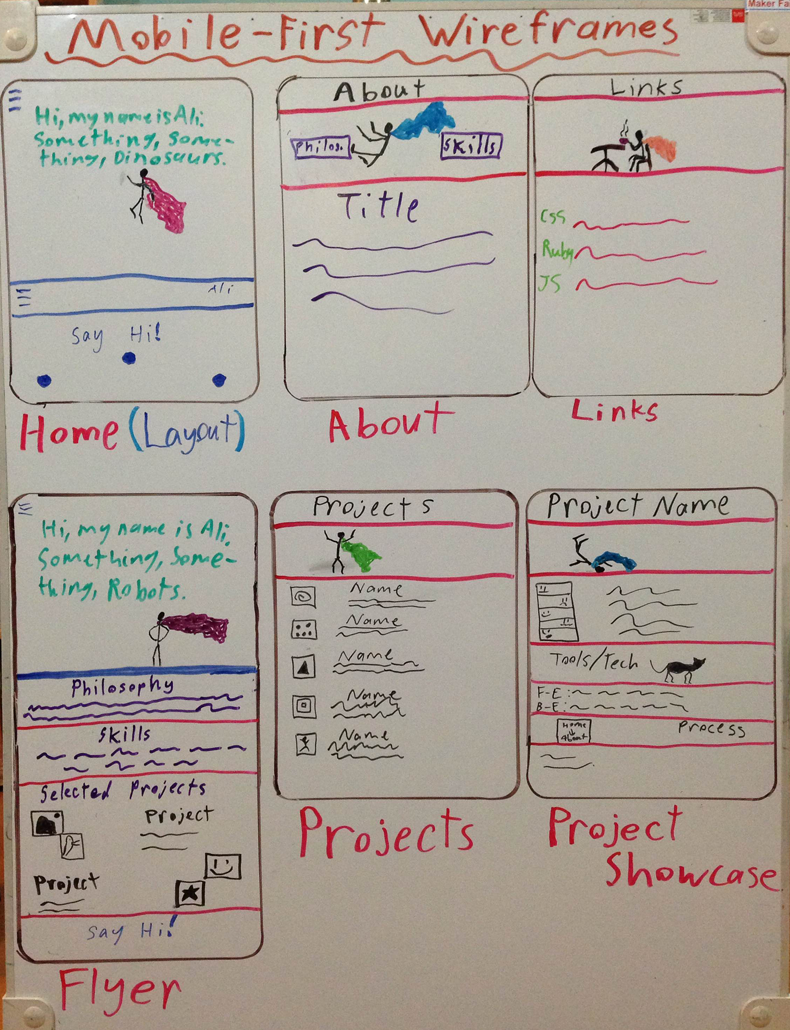 Maker Fa
Mobile-First Wireframes
Hi, my name is Ali.
Something, Some-
thing, Dinosaurs.
Ali
Say Hi!
Home (Layout)
About
Philos.
Skills
Title
About
Links
CSS
Ruby
JS
Links
Hi, my name is Ali.
Something, Some-
thing, Robots.
Philosophy
Skills
Selected Projects
Project
Project
Say Hi!
Flyer
Projects
Name
Name
Name
Name
Name
Projects
Project Name
Tools/Tech
F-E:
B-E:
Home
About
Process
Project
Showcase